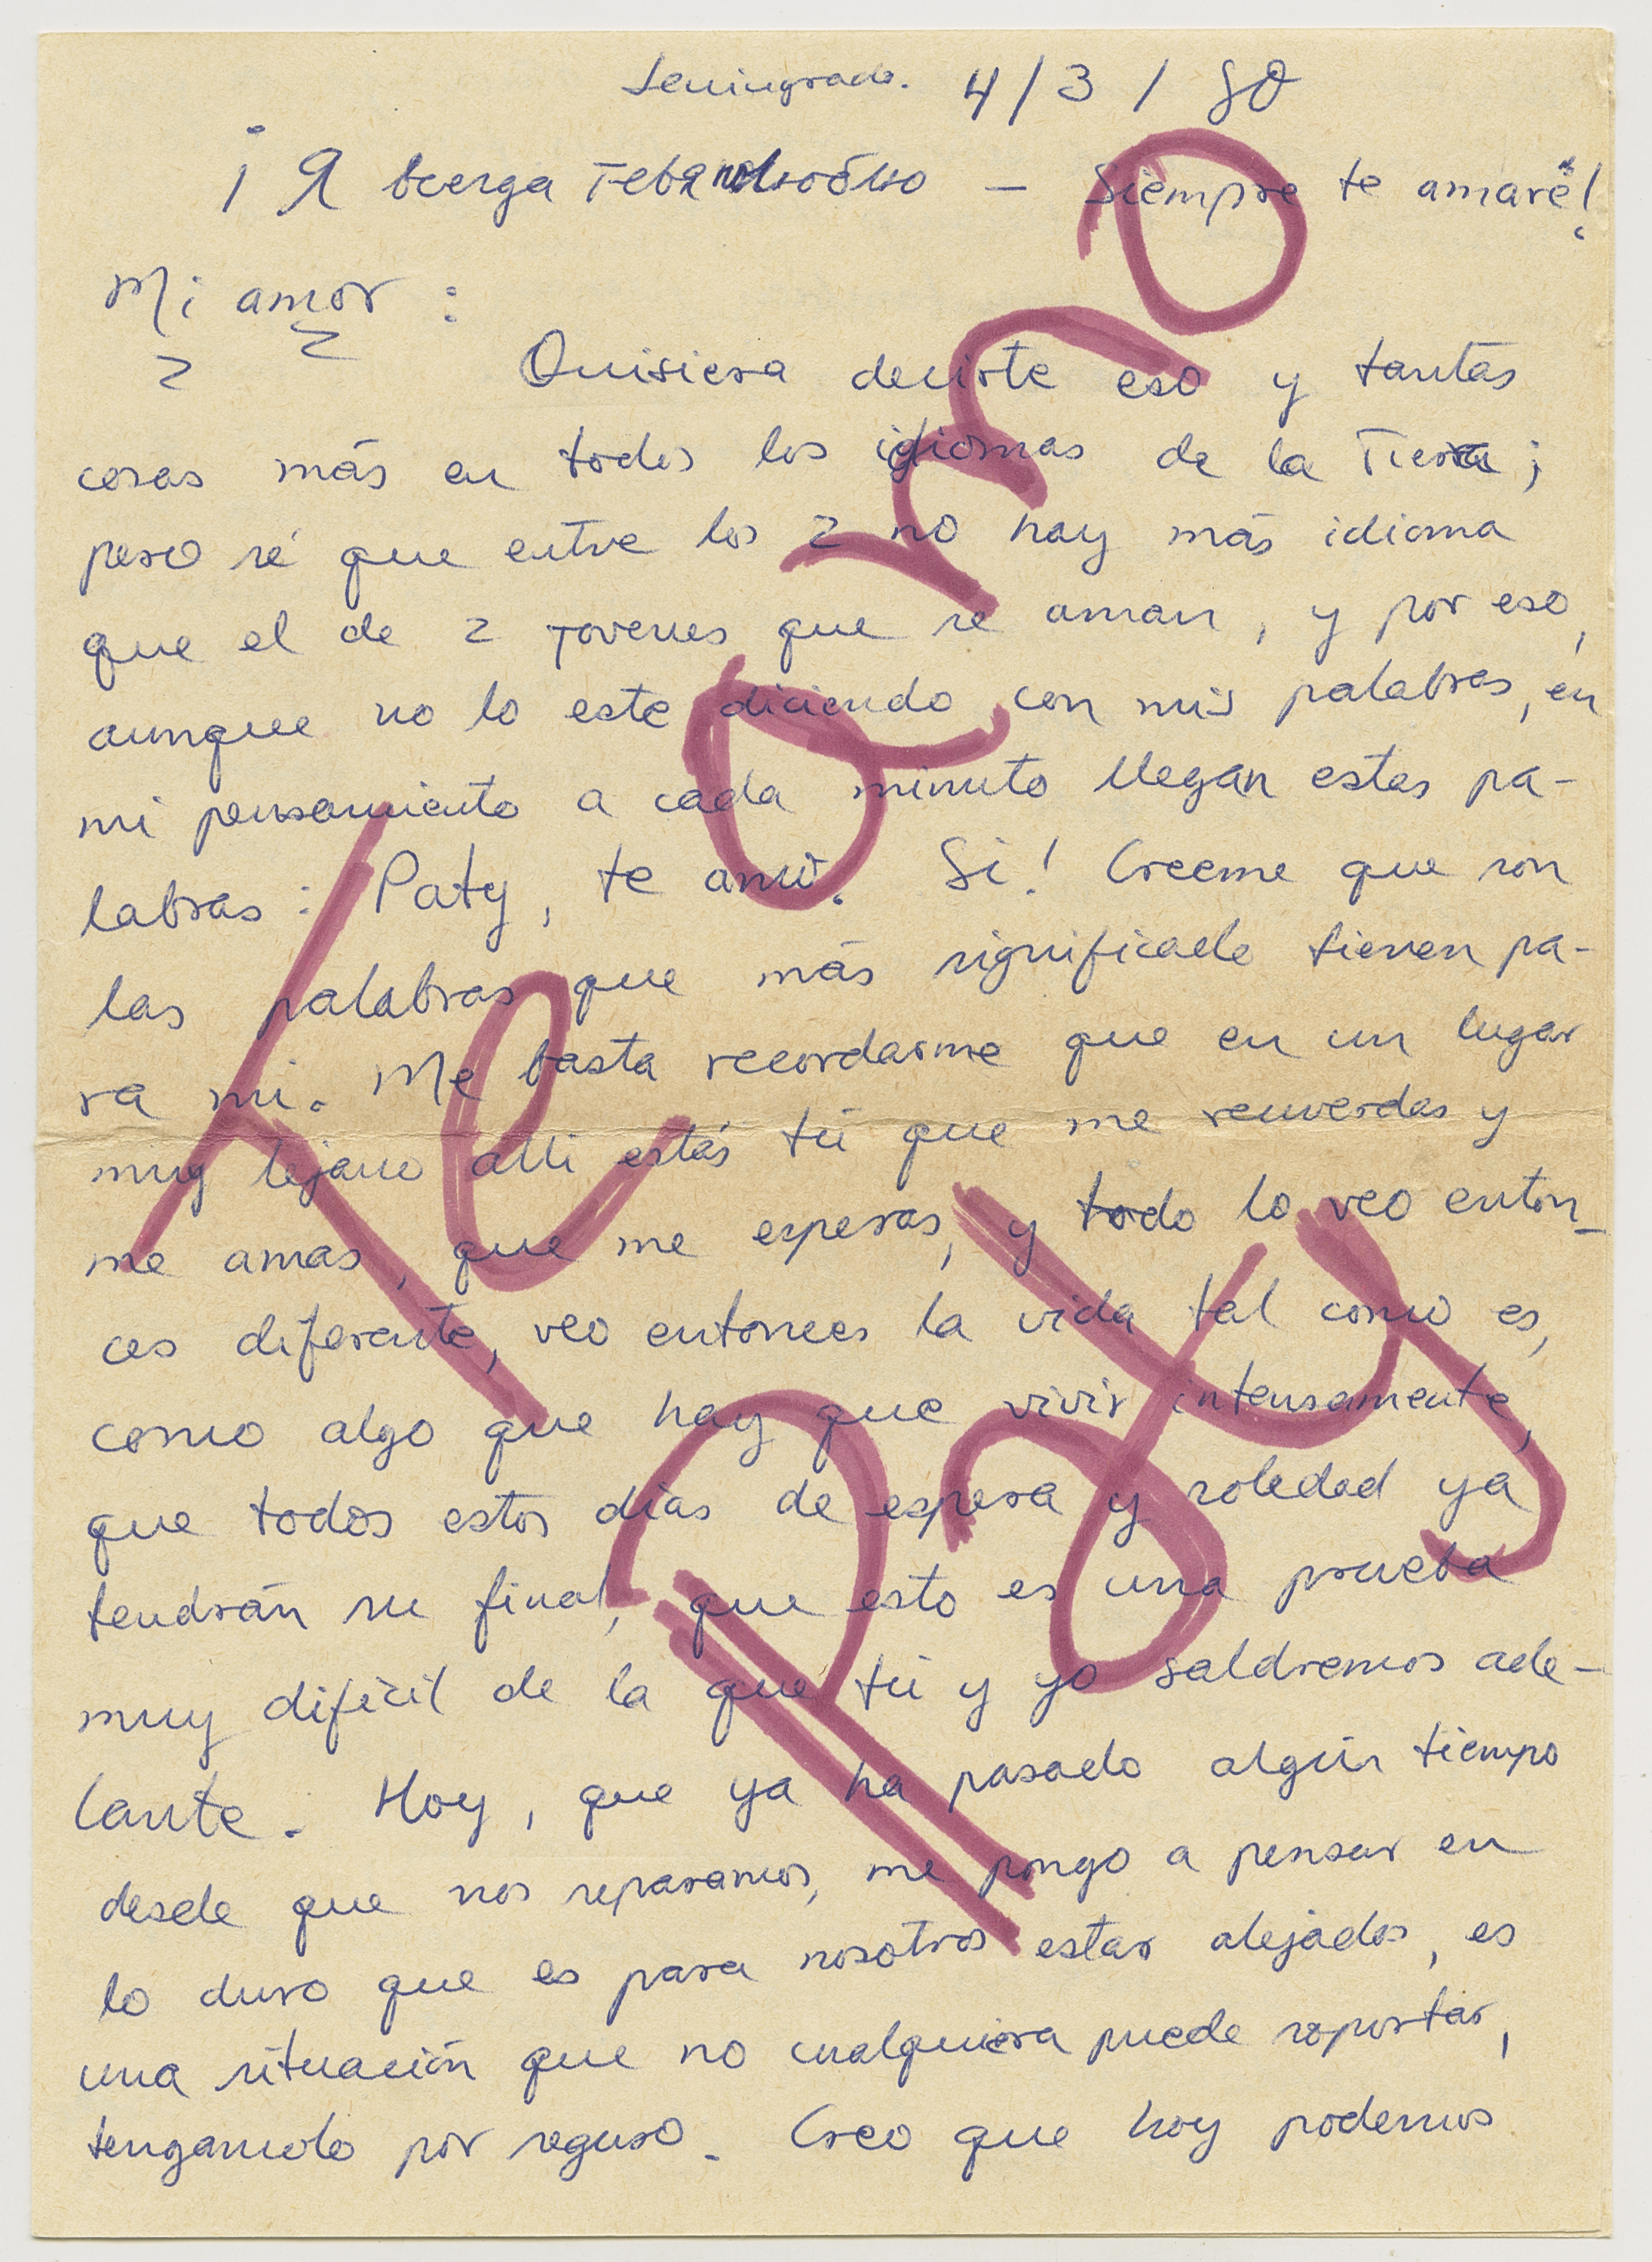 Leningrado. 4/3/80
¡Я всегда тебя люблю — Siempre te amaré!
Mi amor:
Quisiera decirte eso y tantas
cosas más en todos los idiomas de la Tierra;
pero sé que entre los 2 no hay más idioma
que el de 2 jovenes que se aman, y por eso,
aunque no lo este diciendo con mis palabras, en
mi pensamiento a cada minuto llegan estas pa-
labras: Paty, te amo. Si! Creeme que son
las palabras que más significado tienen pa-
ra mi. Me basta recordarme que en un lugar
muy lejano alli estás tú que me recuerdas y
me amas, que me esperas, y todo lo veo enton-
ces diferente, veo entonces la vida tal como es,
como algo que hay que vivir intensamente,
que todos estos dias de espera y soledad ya
tendrán su final, que esto es una prueba
muy difícil de la que tú y yo saldremos ade-
lante. Hoy, que ya ha pasado algún tiempo
desde que nos separamos, me pongo a pensar en
lo duro que es para nosotros estar alejados, es
una situación que no cualquiera puede soportar,
tengamolo por seguro. Creo que hoy podemos
Te amo
Paty